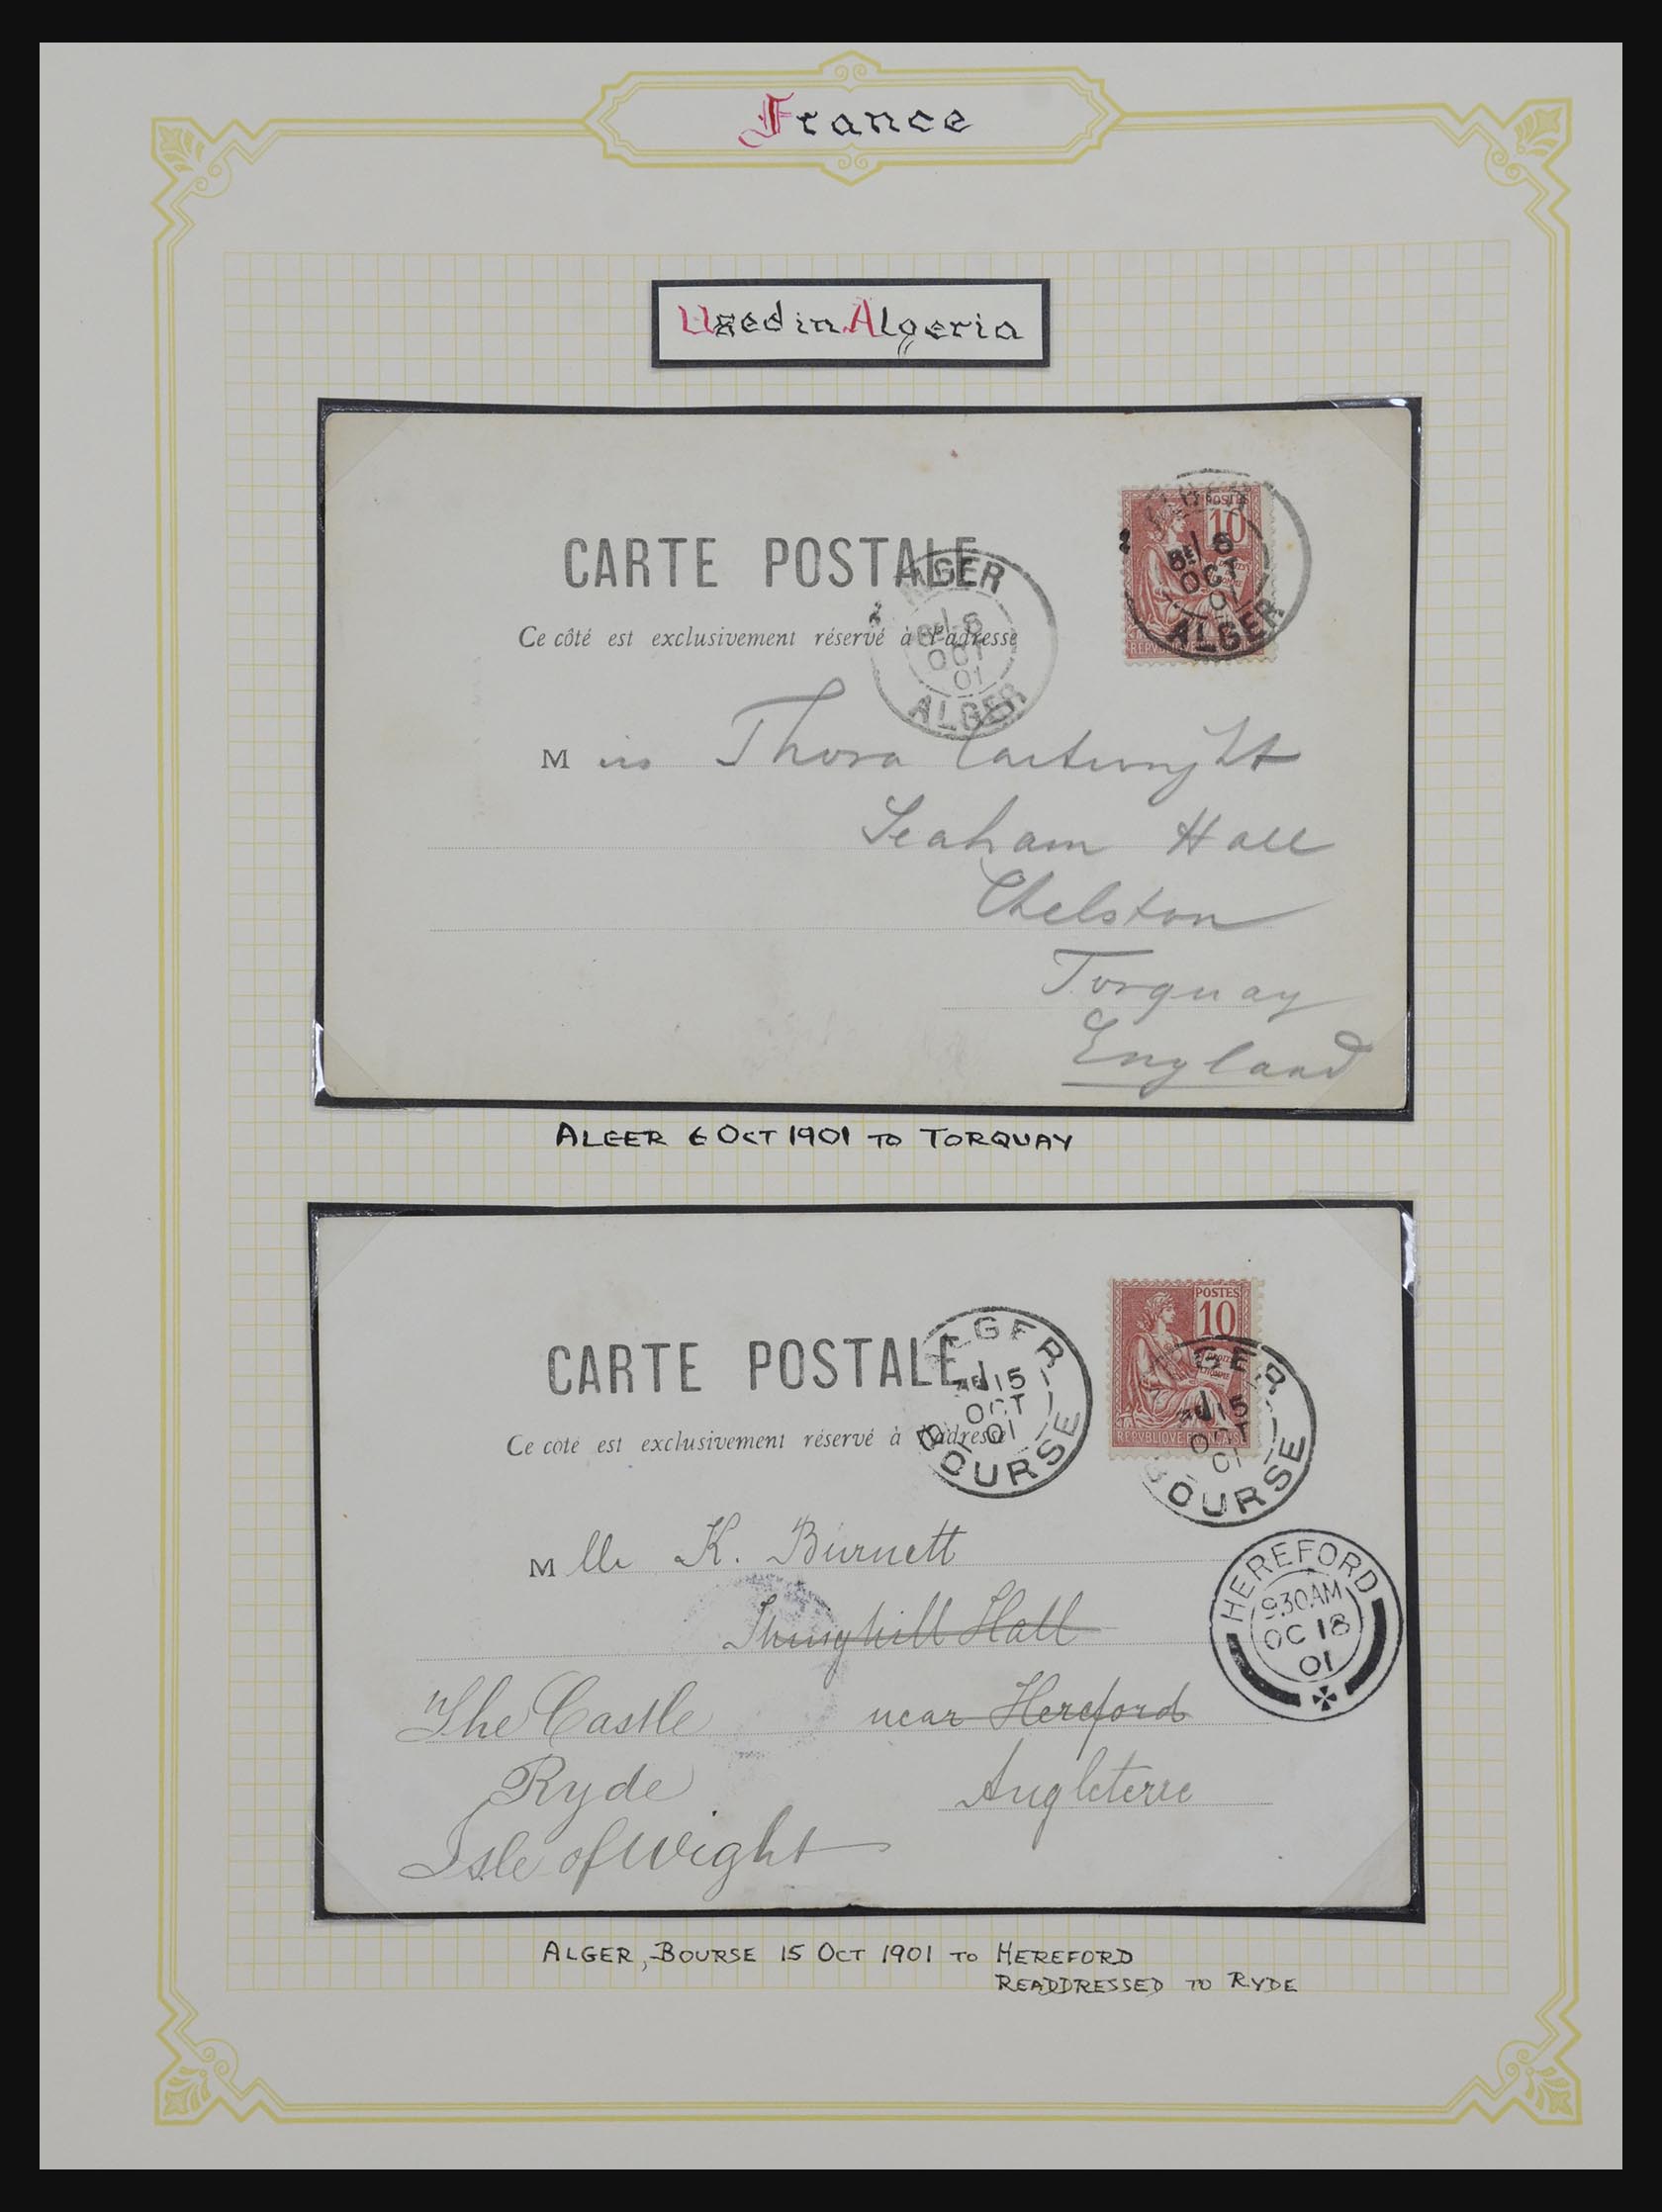 France
Used in Algeria
POSTES
10
ALGER
8E 6
OCT
01
ALGER
REPVBLIQVE
CARTE POSTALE
ALGER
8E 6
OCT
01
ALGER
Ce côté est exclusivement réservé à l'adresse
Miss Thora Cartwright
Seaham Hall
Chelston
Torquay
England
ALGER 6 OCT 1901 TO TORQUAY
POSTES
10
REPVBLIQVE FRANÇAISE
ALGER
15
OCT
01
BOURSE
CARTE POSTALE
ALGER
15
OCT
01
BOURSE
Ce côté est exclusivement réservé à l'adresse
Mlle K. Burnett
Hall
near Hereford
Angleterre
The Castle
Ryde
Isle of Wight
HEREFORD
9.30AM
OC 18
01
ALGER, BOURSE 15 OCT 1901 TO HEREFORD
READDRESSED TO RYDE